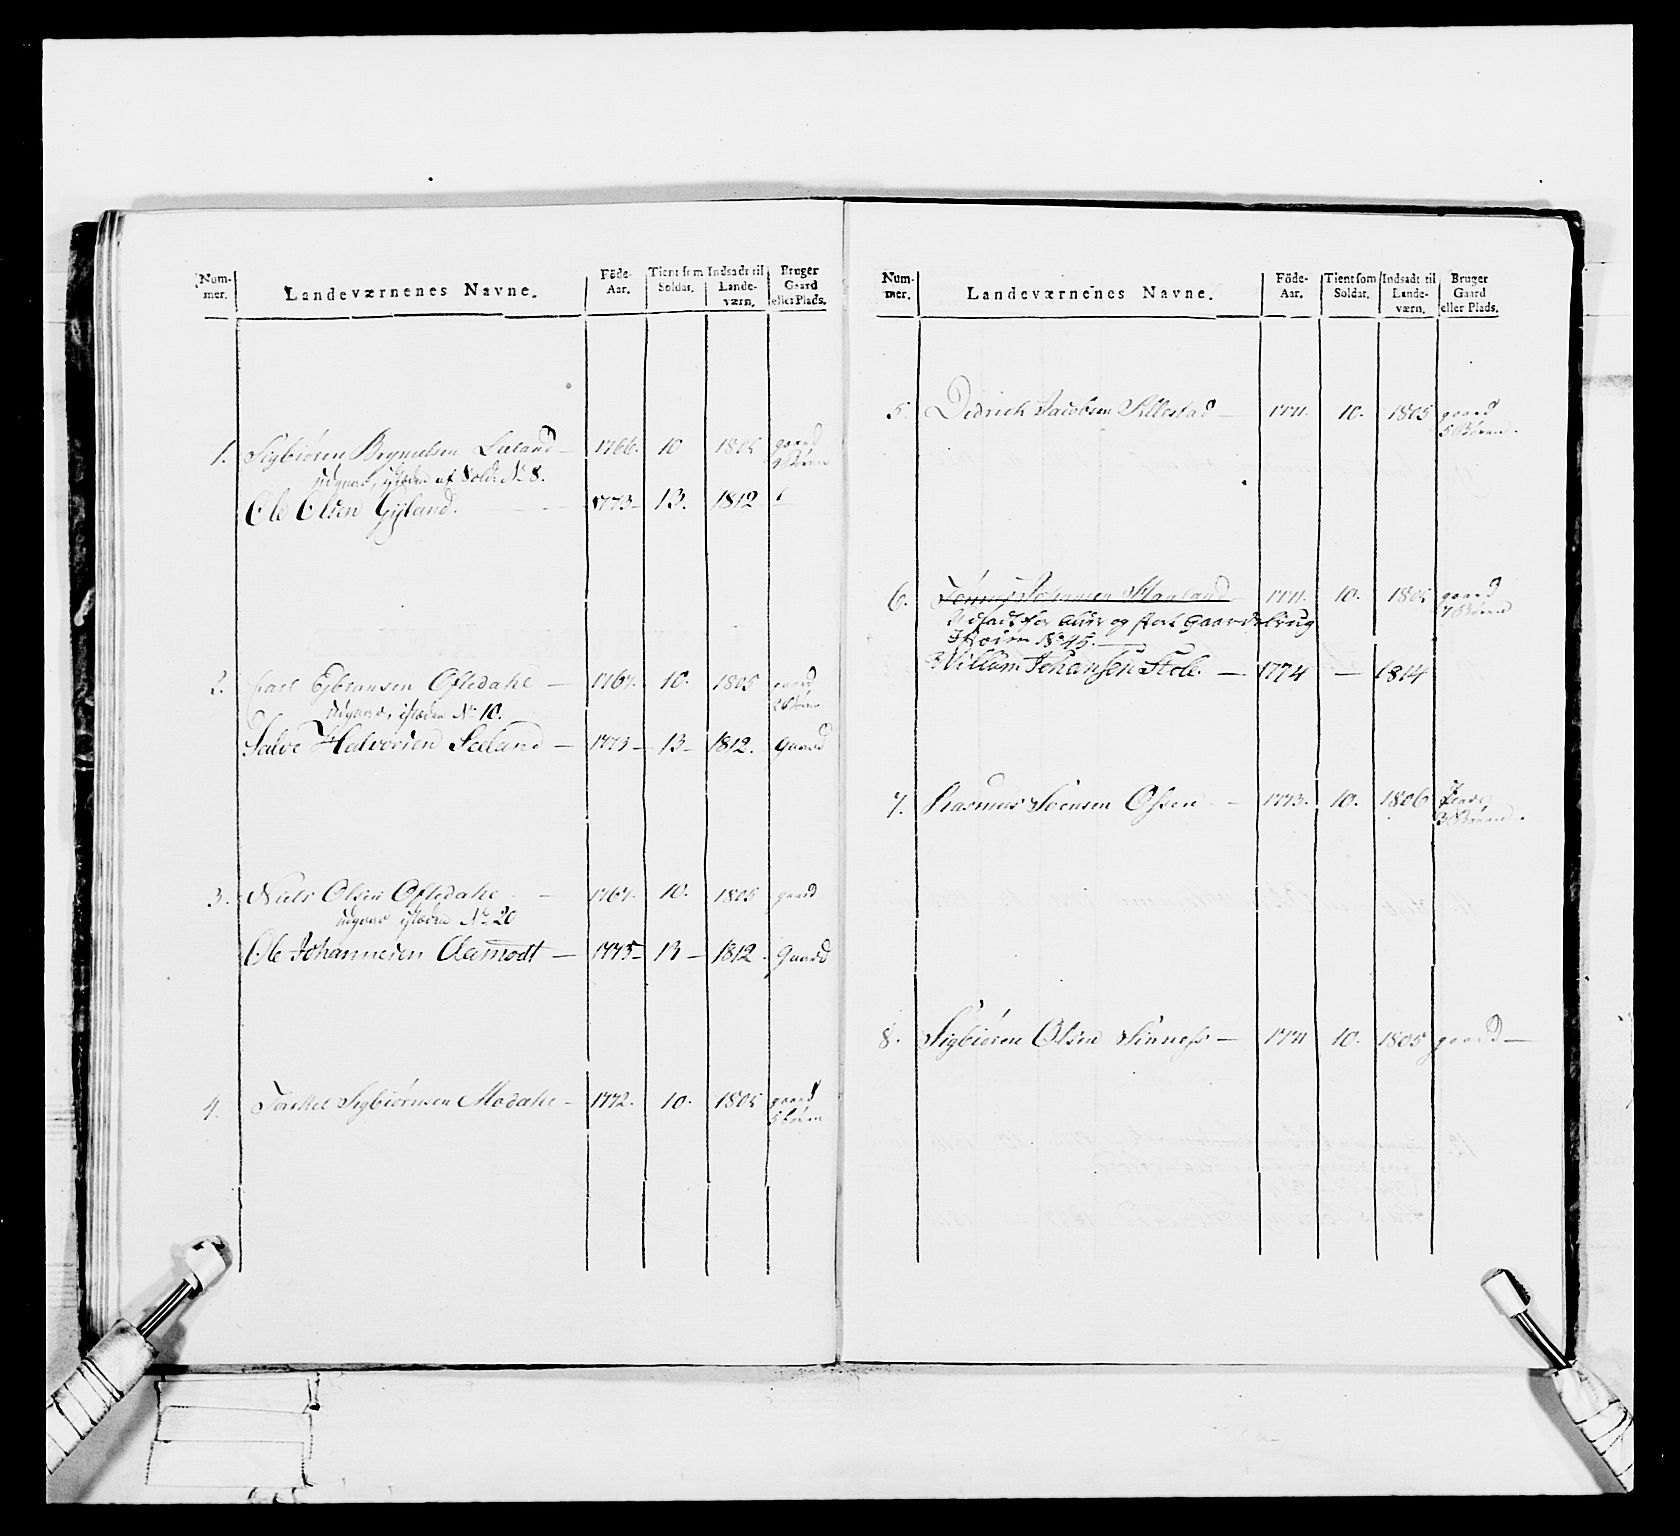 Num-
mer.
Landeværnenes Navne.
Föde-
Aar.
Tient som
Soldat.
Indsadt til
Lande-
værn.
Bruger
Gaard
eller Plads.
1. Sigbiören Brynielsen Lieland — 1766. 10 1805 gaard
Børn
udgaar, isteden af Sold: No 8.
Ole Olsen Gÿland. — 1773 — 13. 1812
2. Carl Ejbransen Oftedahl — 1767. 10. 1805 gaard
2 Børn
udgaar, isteden No 10.
Salve Halvorsen Seeland — 1773 — 13 — 1812. Gaard
3. Niels Olsen Oftedahl — 1767. 10. 1805 gaard
udgaar isteden No 20
Ole Johannesen Aamodt — 1775 — 13 — 1812. Gaard
4. Torkel Sigbiörnsen Modahl — 1772. 10. 1805 gaard
5 børn
Num-
mer.
Landeværnenes Navne.
Föde-
Aar.
Tient som
Soldat.
Indsadt til
Lande-
værn.
Bruger
Gaard
eller Plads.
5. Didrich Jacobsen Sillestad — 1771. 10. 1805 gaard
5 Børn.
6. Tönnes Johansen Staaland 1771. 10. 1805 gaard
4 Børn
Udsadt for Alder og stort Gaardsbrug
No 45. —
Willum Johansen Stole. — 1774 — 1814
7. Rasmus Svensen Ossen — 1773. 10. 1806
3 Børn.
8. Sigbiören Olsen Sinness — 1771 10. 1805 gaard —